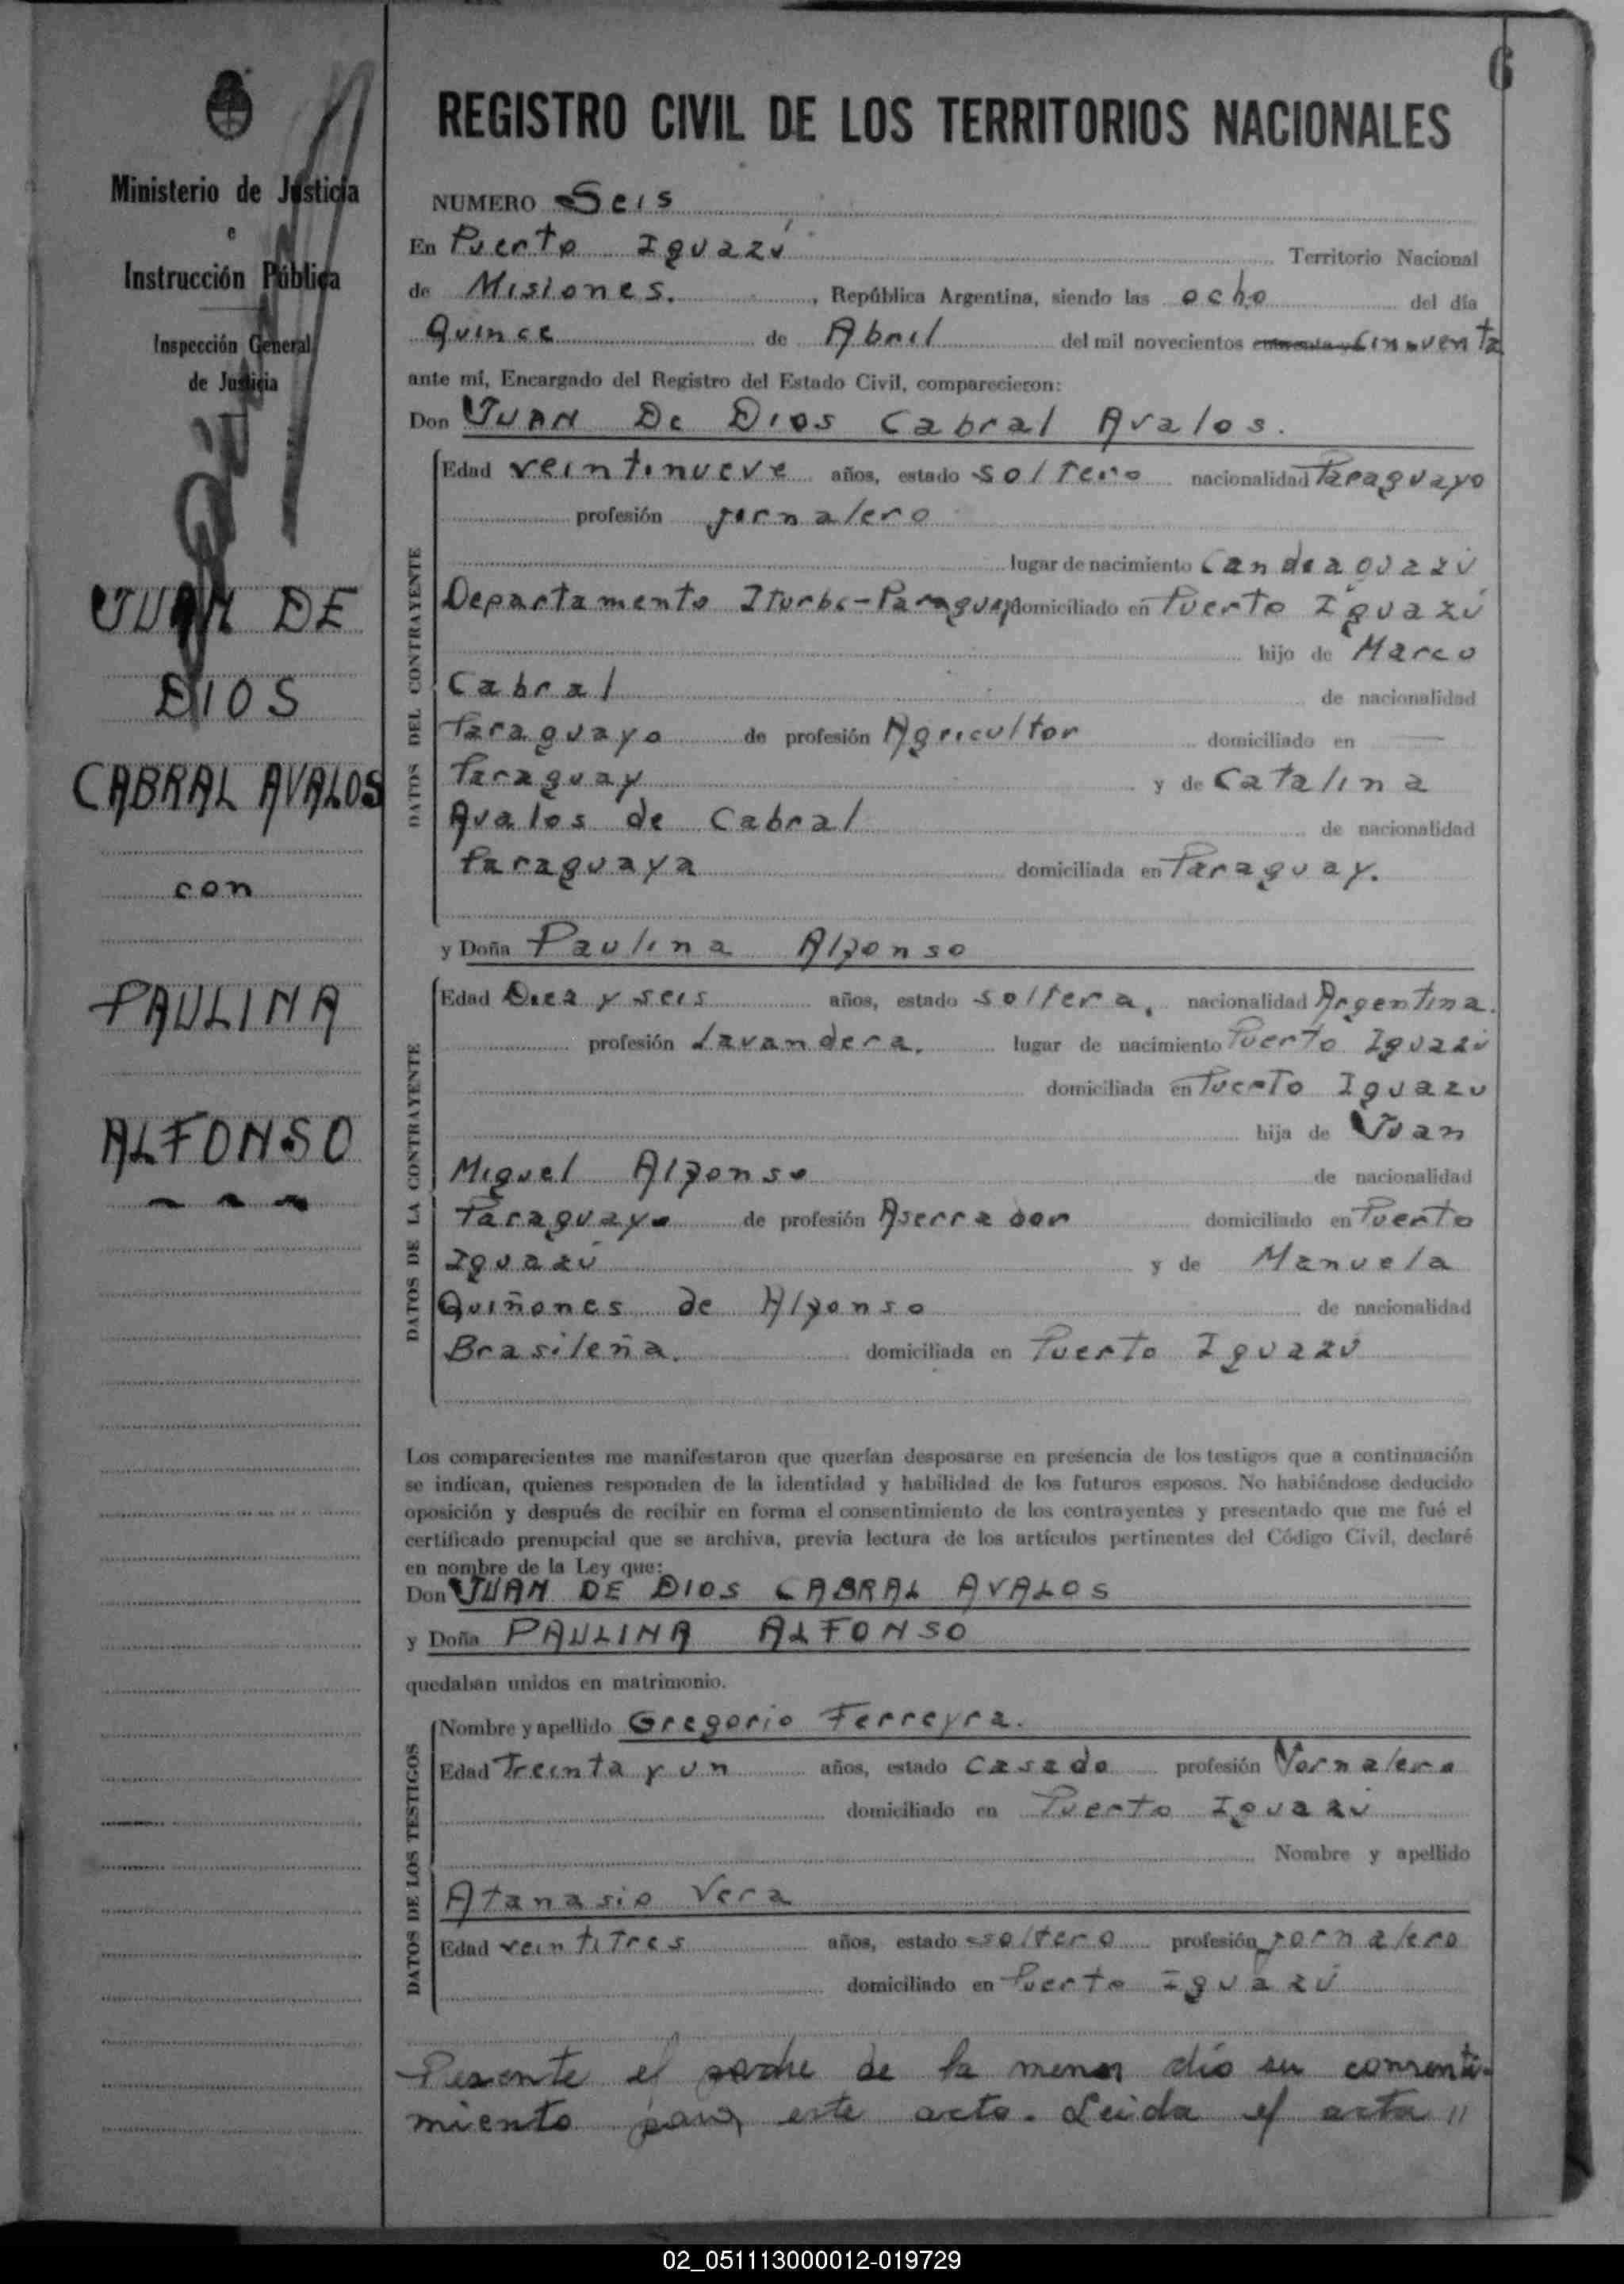 6
Ministerio de Justicia
e
Instrucción Pública
Inspección General
de Justicia
JUAN DE
DIOS
CABRAL AVALOS
con
PAULINA
ALFONSO
REGISTRO CIVIL DE LOS TERRITORIOS NACIONALES
NUMERO Seis
En Puerto Iguazú Territorio Nacional
de Misiones. , República Argentina, siendo las ocho del día
Quince de Abril del mil novecientos cincuenta
ante mí, Encargado del Registro del Estado Civil, comparecieron:
Don JUAN De Dios Cabral Avalos.
DATOS DEL CONTRAYENTE
Edad veintinueve años, estado soltero nacionalidad Paraguayo
profesión jornalero
lugar de nacimiento
Departamento Iturbe-Paraguay domiciliado en Puerto Iguazú
hijo de Marco
Cabral de nacionalidad
Paraguayo de profesión Agricultor domiciliado en
Paraguay y de Catalina
Avalos de Cabral de nacionalidad
Paraguaya domiciliada en Paraguay.
y Doña Paulina Alfonso
DATOS DE LA CONTRAYENTE
Edad Diez y seis años, estado soltera, nacionalidad Argentina.
profesión Lavandera. lugar de nacimiento Puerto Iguazú
domiciliada en Puerto Iguazu
hija de Juan
Miguel Alfonso de nacionalidad
Paraguayo de profesión Aserrador domiciliado en Puerto
Iguazú y de Manuela
Quiñones de Alfonso de nacionalidad
Brasileña. domiciliada en Puerto Iguazú
Los comparecientes me manifestaron que querían desposarse en presencia de los testigos que a continuación
se indican, quienes responden de la identidad y habilidad de los futuros esposos. No habiéndose deducido
oposición y después de recibir en forma el consentimiento de los contrayentes y presentado que me fué el
certificado prenupcial que se archiva, previa lectura de los artículos pertinentes del Código Civil, declaré
en nombre de la Ley que:
Don JUAN DE DIOS CABRAL AVALOS
y Doña PAULINA ALFONSO
quedaban unidos en matrimonio.
DATOS DE LOS TESTIGOS
Nombre y apellido Gregorio Ferreyra.
Edad Treinta y un años, estado Casado profesión Jornalero
domiciliado en Puerto Iguazú
Nombre y apellido
Atanasio Vera
Edad veintiTres años, estado soltero profesión jornalero
domiciliado en Puerto Iguazú
Presente el padre de la menor dío su consenti-
miento para este acto. Leida el acta //
02_051113000012-019729